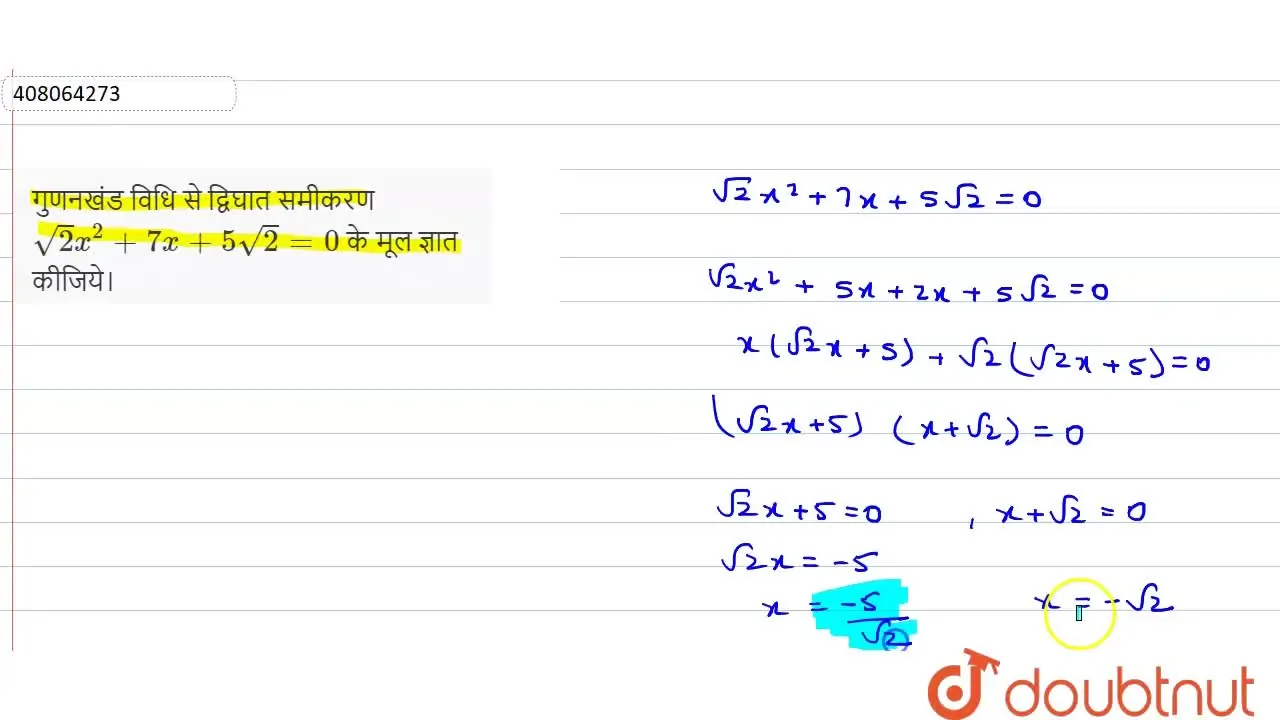 408064273
गुणनखंड विधि से द्विघात समीकरण
√2x² + 7x + 5√2 = 0 के मूल ज्ञात
कीजिये।
√2x² + 7x + 5√2 = 0
√2x² + 5x + 2x + 5√2 = 0
x(√2x + 5) + √2(√2x + 5) = 0
(√2x + 5) (x + √2) = 0
√2x + 5 = 0 , x + √2 = 0
√2x = -5
x = -5/√2 x = -√2
doubtnut